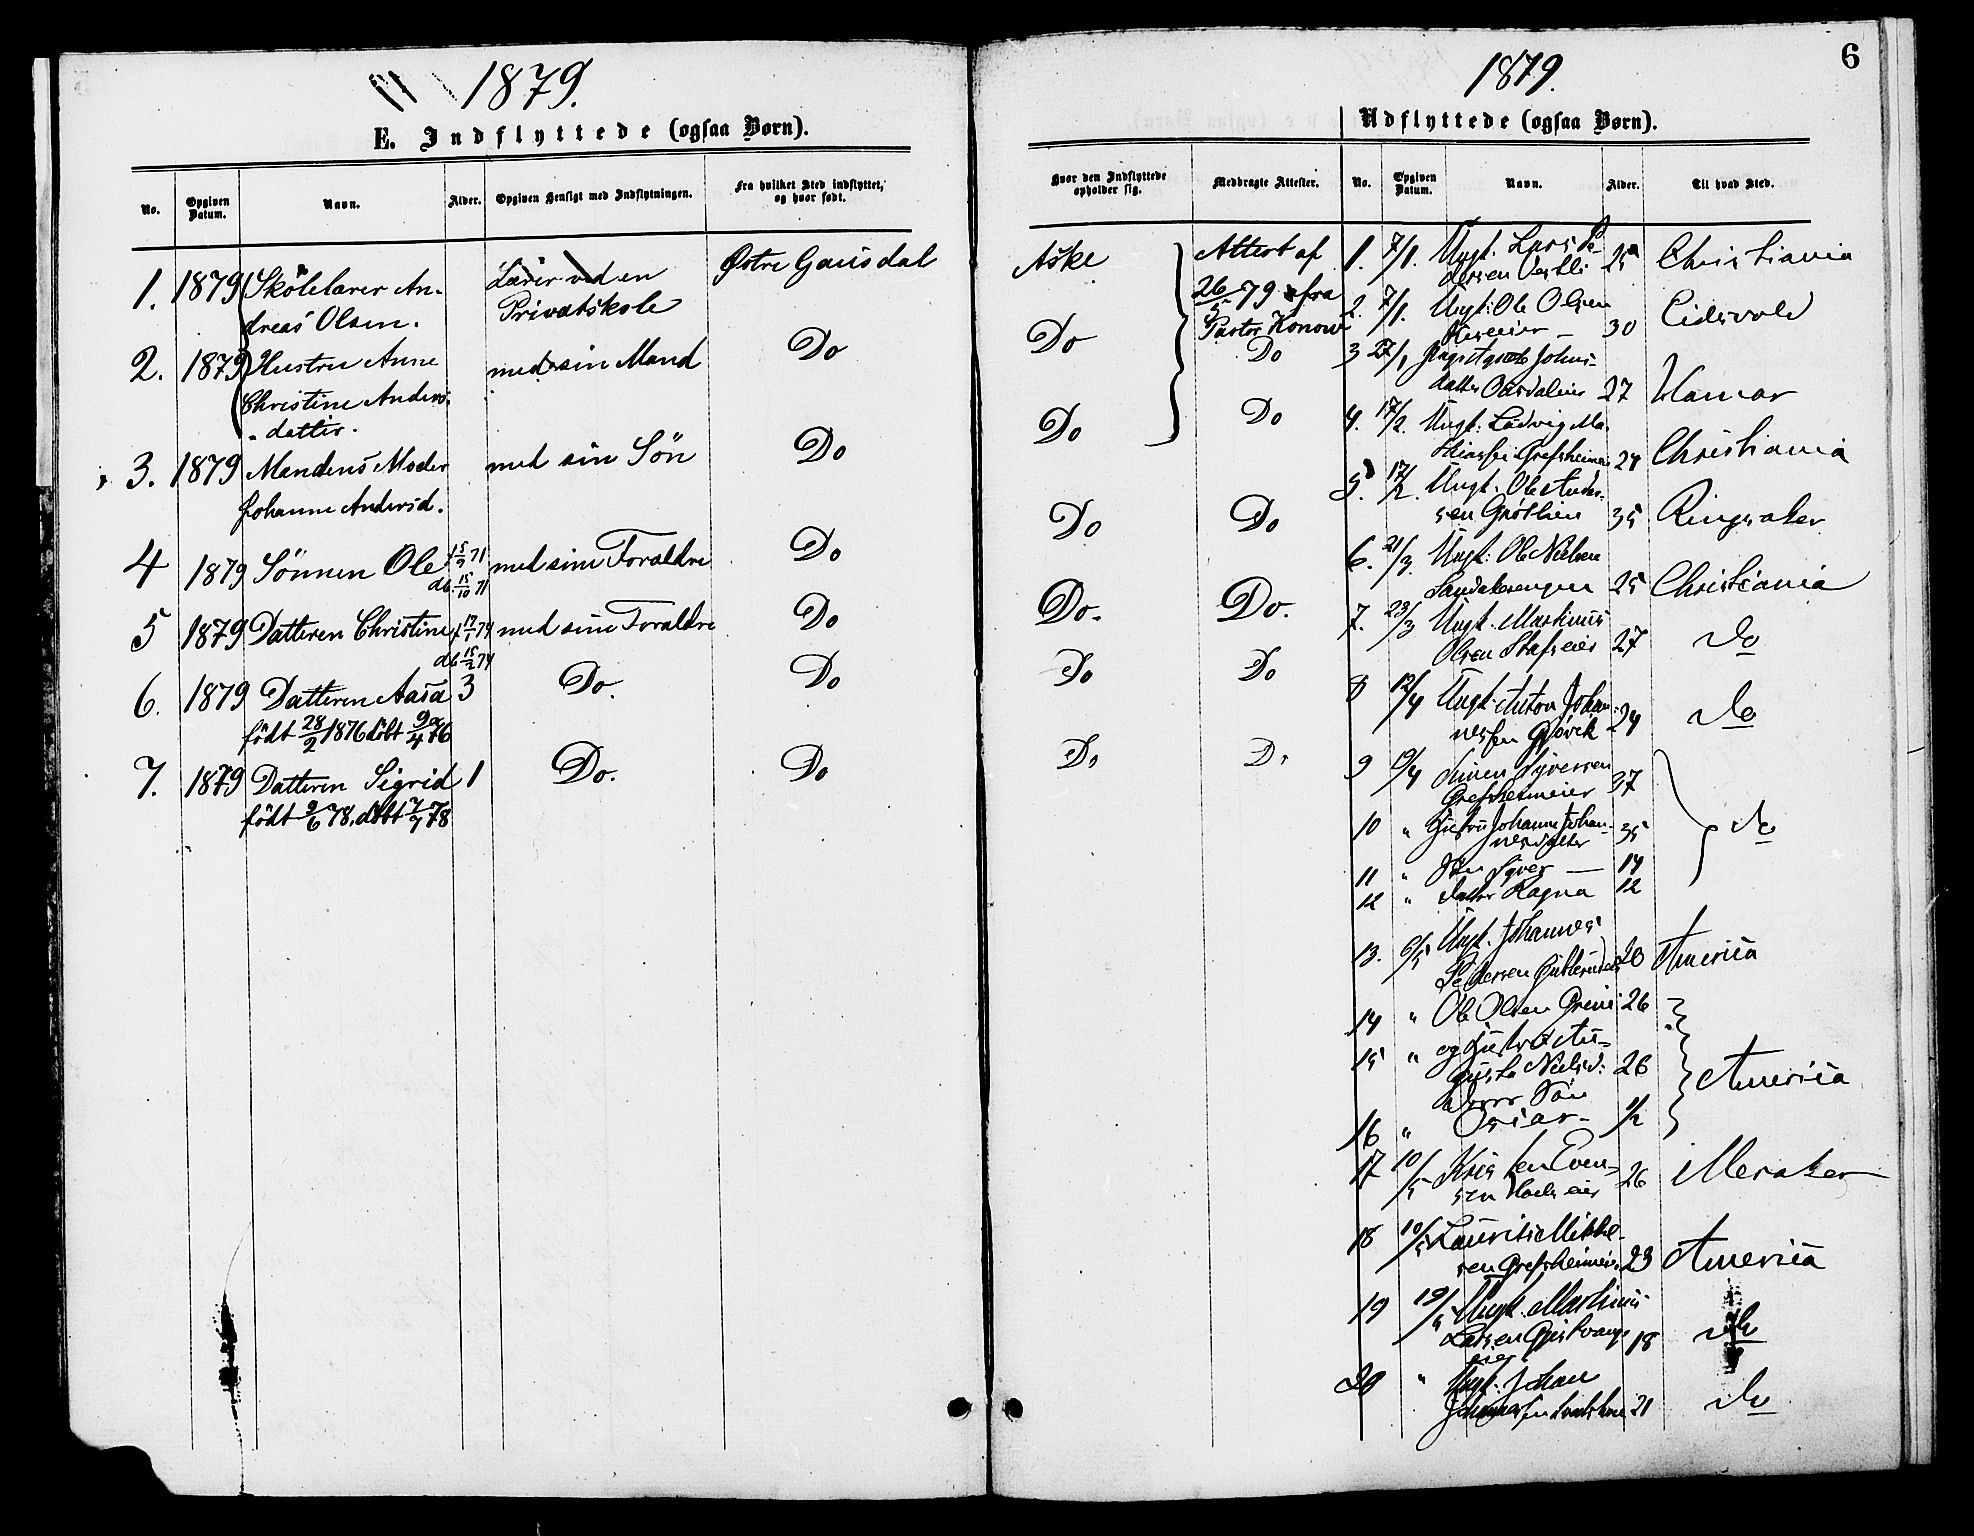 1879.
E. Indflyttede (ogsaa Børn).
No.
Opgiven Datum.
Navn.
Alder.
Opgiven Hensigt med Indflytningen.
Fra hvilket Sted indflyttet,
og hvor født.
1. 1879 Skolelærer An- Lærer ved en Østre Gausdal
dreas Olsen. Privatskole
2. 1879 Hustru Anne med sin Mand Do
Christine Anders
datter.
3. 1879 Mandens Moder med sin Søn Do
Johanne Andersd.
4 1879 Sønnen Ole f 5/9 71 med sine Foraldre Do
db. 15/10 71
5 1879 Datteren Christine f 17/1 74 med sine Foraldre Do
db 15/2 74
6. 1879 Datteren Aasa 3 Do. Do
født 28/2 1876 døbt 9/4 76
7. 1879 Datteren Sigrid 1 Do. Do
født 2/6 78, døbt 7/7 78
1879.
6
Udflyttede (ogsaa Børn).
Hvor den Indflyttede
opholder sig.
Medbragte Attester.
No.
Opgiven Datum.
Navn.
Alder.
Til hvad Sted.
Aske Attest af
26/5 79 fra
Pastor Konow
Do Do
Do Do
Do Do
Do. Do.
Do Do
Do Do
1. 7/1. Ungk. Lars Pe-
dersen Vestli 25 Christiania
2. 7/1. Ungk: Ole Olsen
30 Eidsvold
3 27/1 Johns-
datter 27 Hamar
4. 17/2. Ungk: Ludvig Ma-
thiassen Grefsheimeier 24 Christiania
5. 17/2. Ungk. Ole Anders-
sen Grøtlien 35 Ringsaker
6. 21/3. Ungk: Ole Nielsen
Sandakerengen 25 Christiania
7. 23/3 Ungk. Martinus
Olsen Stafseier 27 do
8 12/4 Ungk. Anton Johan-
nessen Gjøvik 24 do
9 19/4 Simen Syversen
Grefsheimeier 37
10 " Hustru Johanne Johan-
nesdatter 35 do
11 " Søn Syver — 14
12 " Datter Ragna 12
13. 6/5 Ungk. Johannes
Pedersen 20 America
14 " Ole Olsen 26
15 " og Hustru Au-
gusta Nielsd: 26 America
Deres Søn
16 " Oscar - 1/2
17 10/5 Kristen Even-
sen 26 Meraker
18 10/5 Laurits Mikkel-
sen Grefsheimeier 23 America
19 19/5 Ungk. Martinus
Larsen Gjestvang- 18 do
eier
20 " Ungk. Johan
21 do